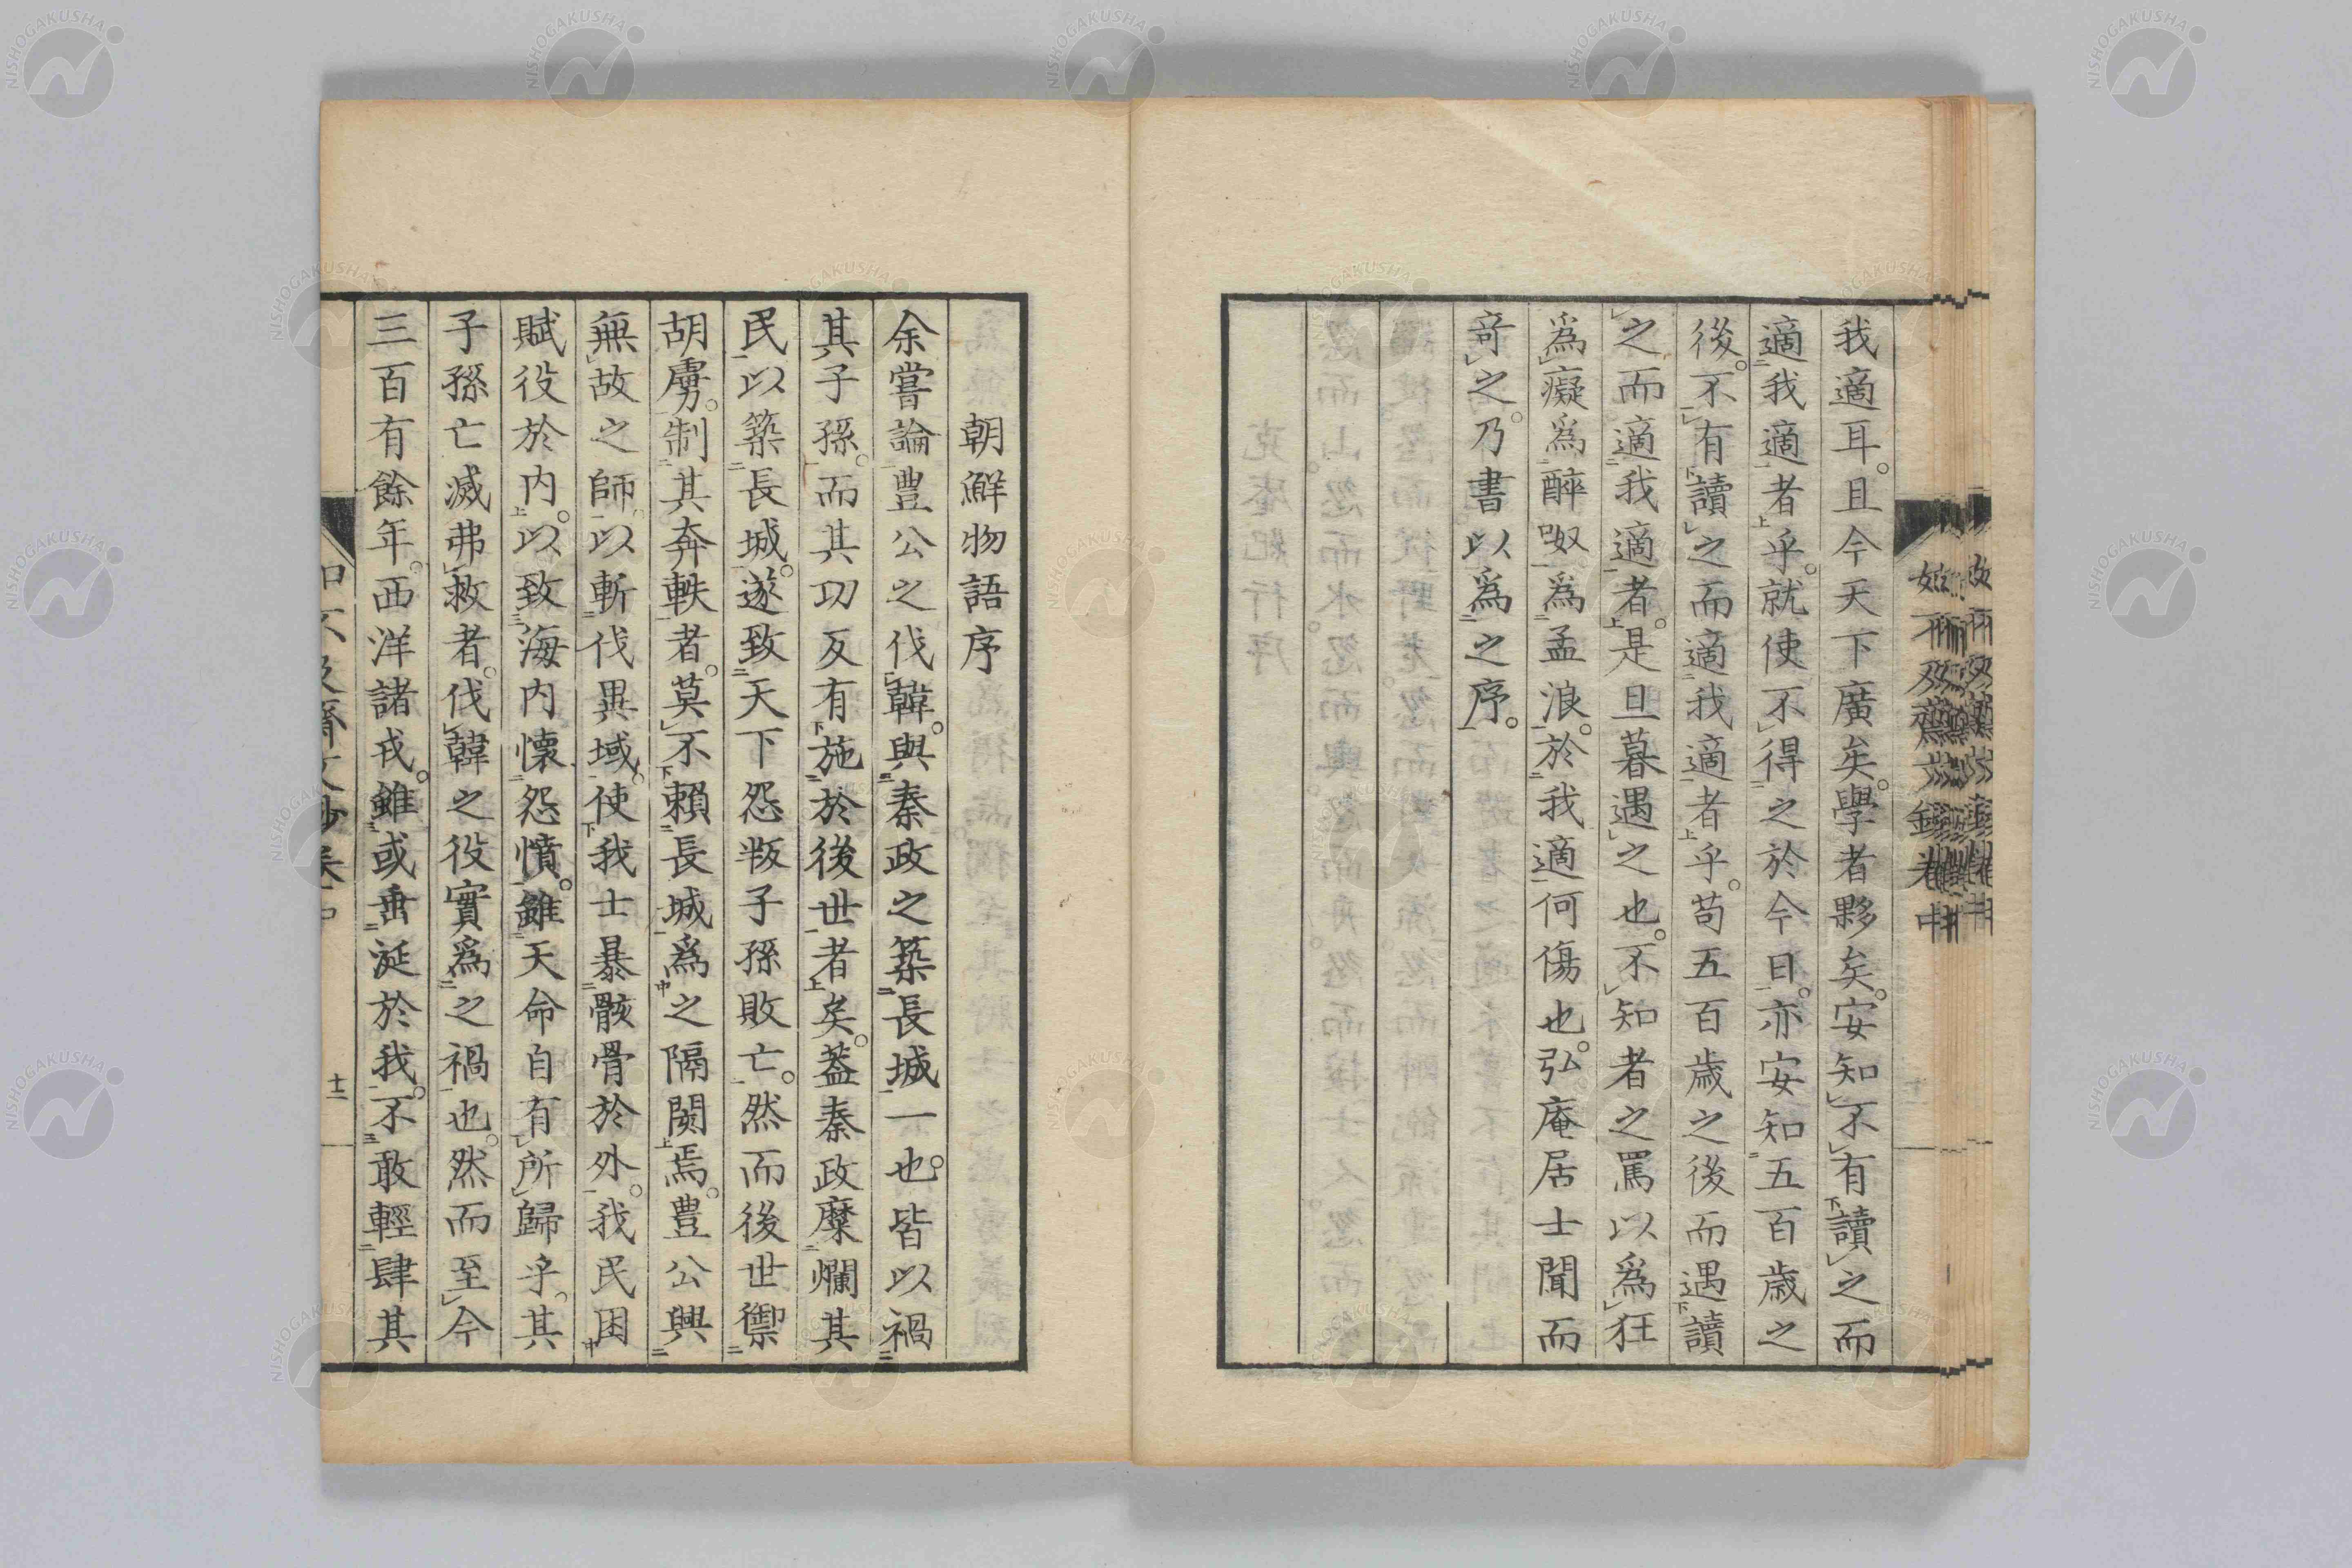 我適耳。且今天下廣矣。學者夥矣。安知不有讀之而
適我適者乎。就使不得之於今日。亦安知五百歳之
後。不有讀之而適我適者乎。苟五百歳之後而遇讀
之而適我適者。是旦暮遇之也。不知者之罵以爲狂
爲癡爲醉呶爲孟浪。於我適何傷也。弘庵居士聞而
奇之。乃書以爲之序。
朝鮮物語序
余嘗論豊公之伐韓。與秦政之築長城一也。皆以禍
其子孫。而其功反有施於後世者矣。蓋秦政糜爛其
民以築長城。遂致天下怨叛子孫敗亡。然而後世禦
胡虜。制其奔軼者。莫不賴長城爲之隔閡焉。豊公興
無故之師以斬伐異域。使我士暴骸骨於外。我民困
賦役於内。以致海内懐怨憤。雖天命自有所歸乎。其
子孫亡滅弗救者。伐韓之役實爲之禍也。然而至今
三百有餘年。西洋諸戎。雖或垂涎於我。不敢輕肆其
十二
NISHOGAKUSHA